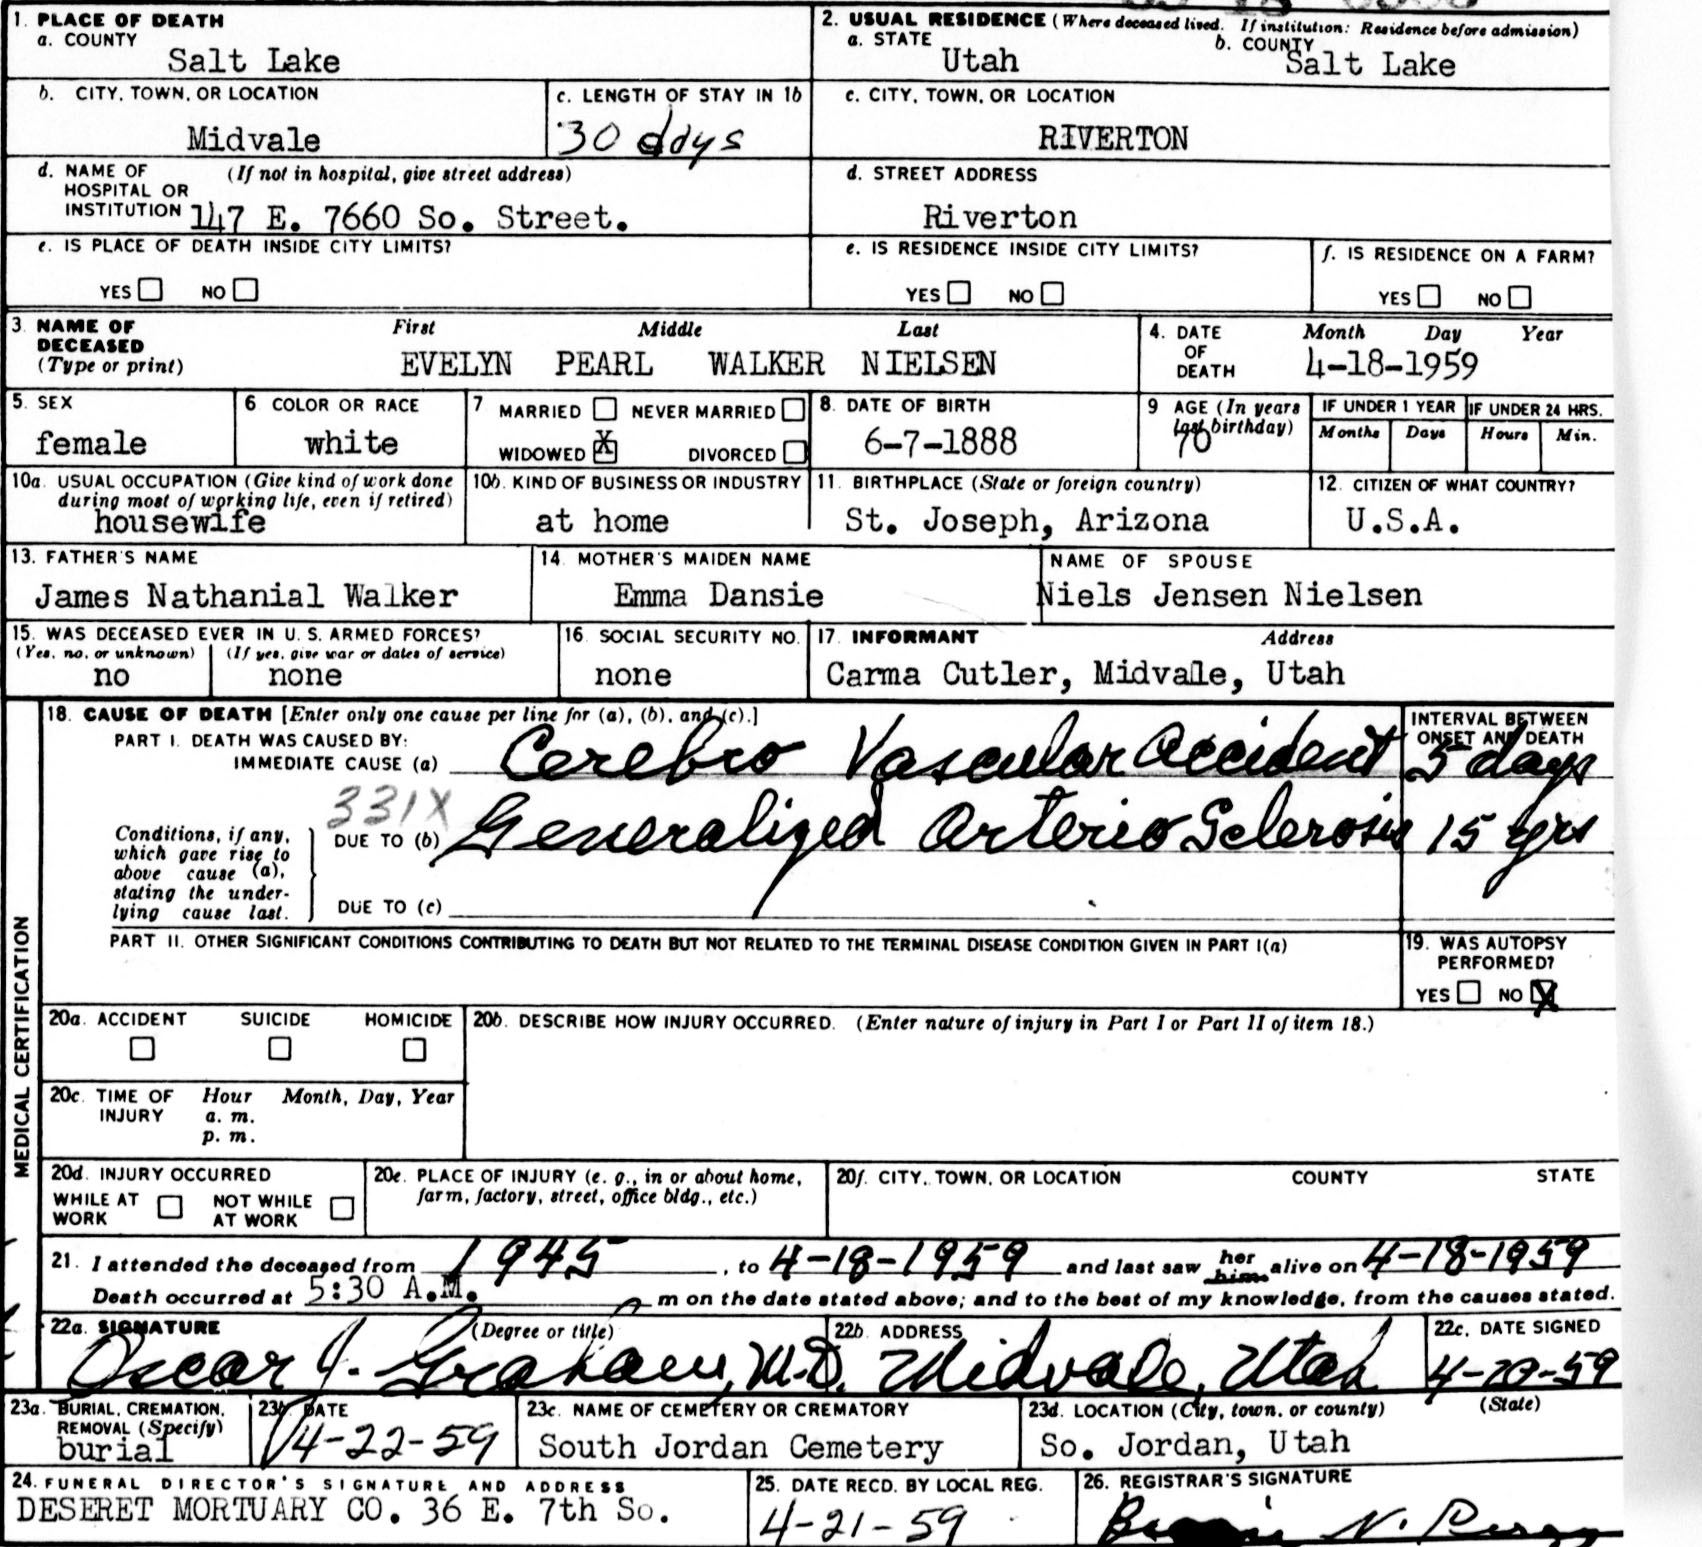 1. PLACE OF DEATH
a. COUNTY
Salt Lake
2. USUAL RESIDENCE (Where deceased lived. If institution: Residence before admission)
a. STATE
Utah
b. COUNTY
Salt Lake
b. CITY, TOWN, OR LOCATION
Midvale
c. LENGTH OF STAY IN 1b
30 days
c. CITY, TOWN, OR LOCATION
RIVERTON
d. NAME OF HOSPITAL OR INSTITUTION (If not in hospital, give street address)
147 E. 7660 So. Street.
d. STREET ADDRESS
Riverton
e. IS PLACE OF DEATH INSIDE CITY LIMITS?
YES NO
e. IS RESIDENCE INSIDE CITY LIMITS?
YES NO
f. IS RESIDENCE ON A FARM?
YES NO
3. NAME OF DECEASED (Type or print)
First Middle Last
EVELYN PEARL WALKER NIELSEN
4. DATE OF DEATH
Month Day Year
4-18-1959
5. SEX
female
6 COLOR OR RACE
white
7 MARRIED NEVER MARRIED
WIDOWED X DIVORCED
8. DATE OF BIRTH
6-7-1888
9 AGE (In years last birthday)
70
IF UNDER 1 YEAR
Months Days
IF UNDER 24 HRS.
Hours Min.
10a. USUAL OCCUPATION (Give kind of work done during most of working life, even if retired)
housewife
10b. KIND OF BUSINESS OR INDUSTRY
at home
11. BIRTHPLACE (State or foreign country)
St. Joseph, Arizona
12. CITIZEN OF WHAT COUNTRY?
U.S.A.
13. FATHER'S NAME
James Nathanial Walker
14. MOTHER'S MAIDEN NAME
Emma Dansie
NAME OF SPOUSE
Niels Jensen Nielsen
15. WAS DECEASED EVER IN U. S. ARMED FORCES?
(Yes, no, or unknown) (If yes, give war or dates of service)
no none
16. SOCIAL SECURITY NO.
none
17. INFORMANT Address
Carma Cutler, Midvale, Utah
MEDICAL CERTIFICATION
18. CAUSE OF DEATH [Enter only one cause per line for (a), (b), and (c).]
PART I. DEATH WAS CAUSED BY:
IMMEDIATE CAUSE (a) Cerebro Vascular Accident
INTERVAL BETWEEN ONSET AND DEATH
5 days
331X
Conditions, if any, which gave rise to above cause (a), stating the underlying cause last.
DUE TO (b) Generalized Arterio Sclerosis 15 yrs
DUE TO (c)
PART II. OTHER SIGNIFICANT CONDITIONS CONTRIBUTING TO DEATH BUT NOT RELATED TO THE TERMINAL DISEASE CONDITION GIVEN IN PART I(a)
19. WAS AUTOPSY PERFORMED?
YES NO X
20a. ACCIDENT SUICIDE HOMICIDE
20b. DESCRIBE HOW INJURY OCCURRED. (Enter nature of injury in Part I or Part II of item 18.)
20c. TIME OF INJURY Hour Month, Day, Year
a. m.
p. m.
20d. INJURY OCCURRED
WHILE AT WORK NOT WHILE AT WORK
20e. PLACE OF INJURY (e. g., in or about home, farm, factory, street, office bldg., etc.)
20f. CITY, TOWN, OR LOCATION COUNTY STATE
21. I attended the deceased from 1945, to 4-18-1959 and last saw her him alive on 4-18-1959
Death occurred at 5:30 A.M. m on the date stated above; and to the best of my knowledge, from the causes stated.
22a. SIGNATURE (Degree or title)
Oscar J. Graham, M.D.
22b. ADDRESS
Midvale, Utah
22c. DATE SIGNED
23a. BURIAL, CREMATION, REMOVAL (Specify)
burial
23b. DATE
4-22-59
23c. NAME OF CEMETERY OR CREMATORY
South Jordan Cemetery
23d. LOCATION (City, town, or county) (State)
So. Jordan, Utah
24. FUNERAL DIRECTOR'S SIGNATURE AND ADDRESS
DESERET MORTUARY CO. 36 E. 7th So.
25. DATE RECD. BY LOCAL REG.
4-21-59
26. REGISTRAR'S SIGNATURE
N.